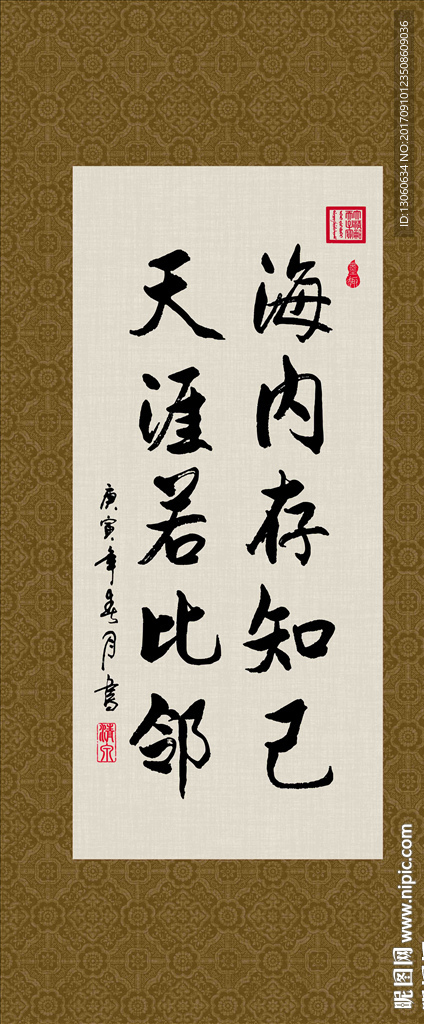 海内存知己
天涯若比邻
庚寅年春月书
清泉
ID:13060634 NO:20170910123508609036
昵图网 www.nipic.com